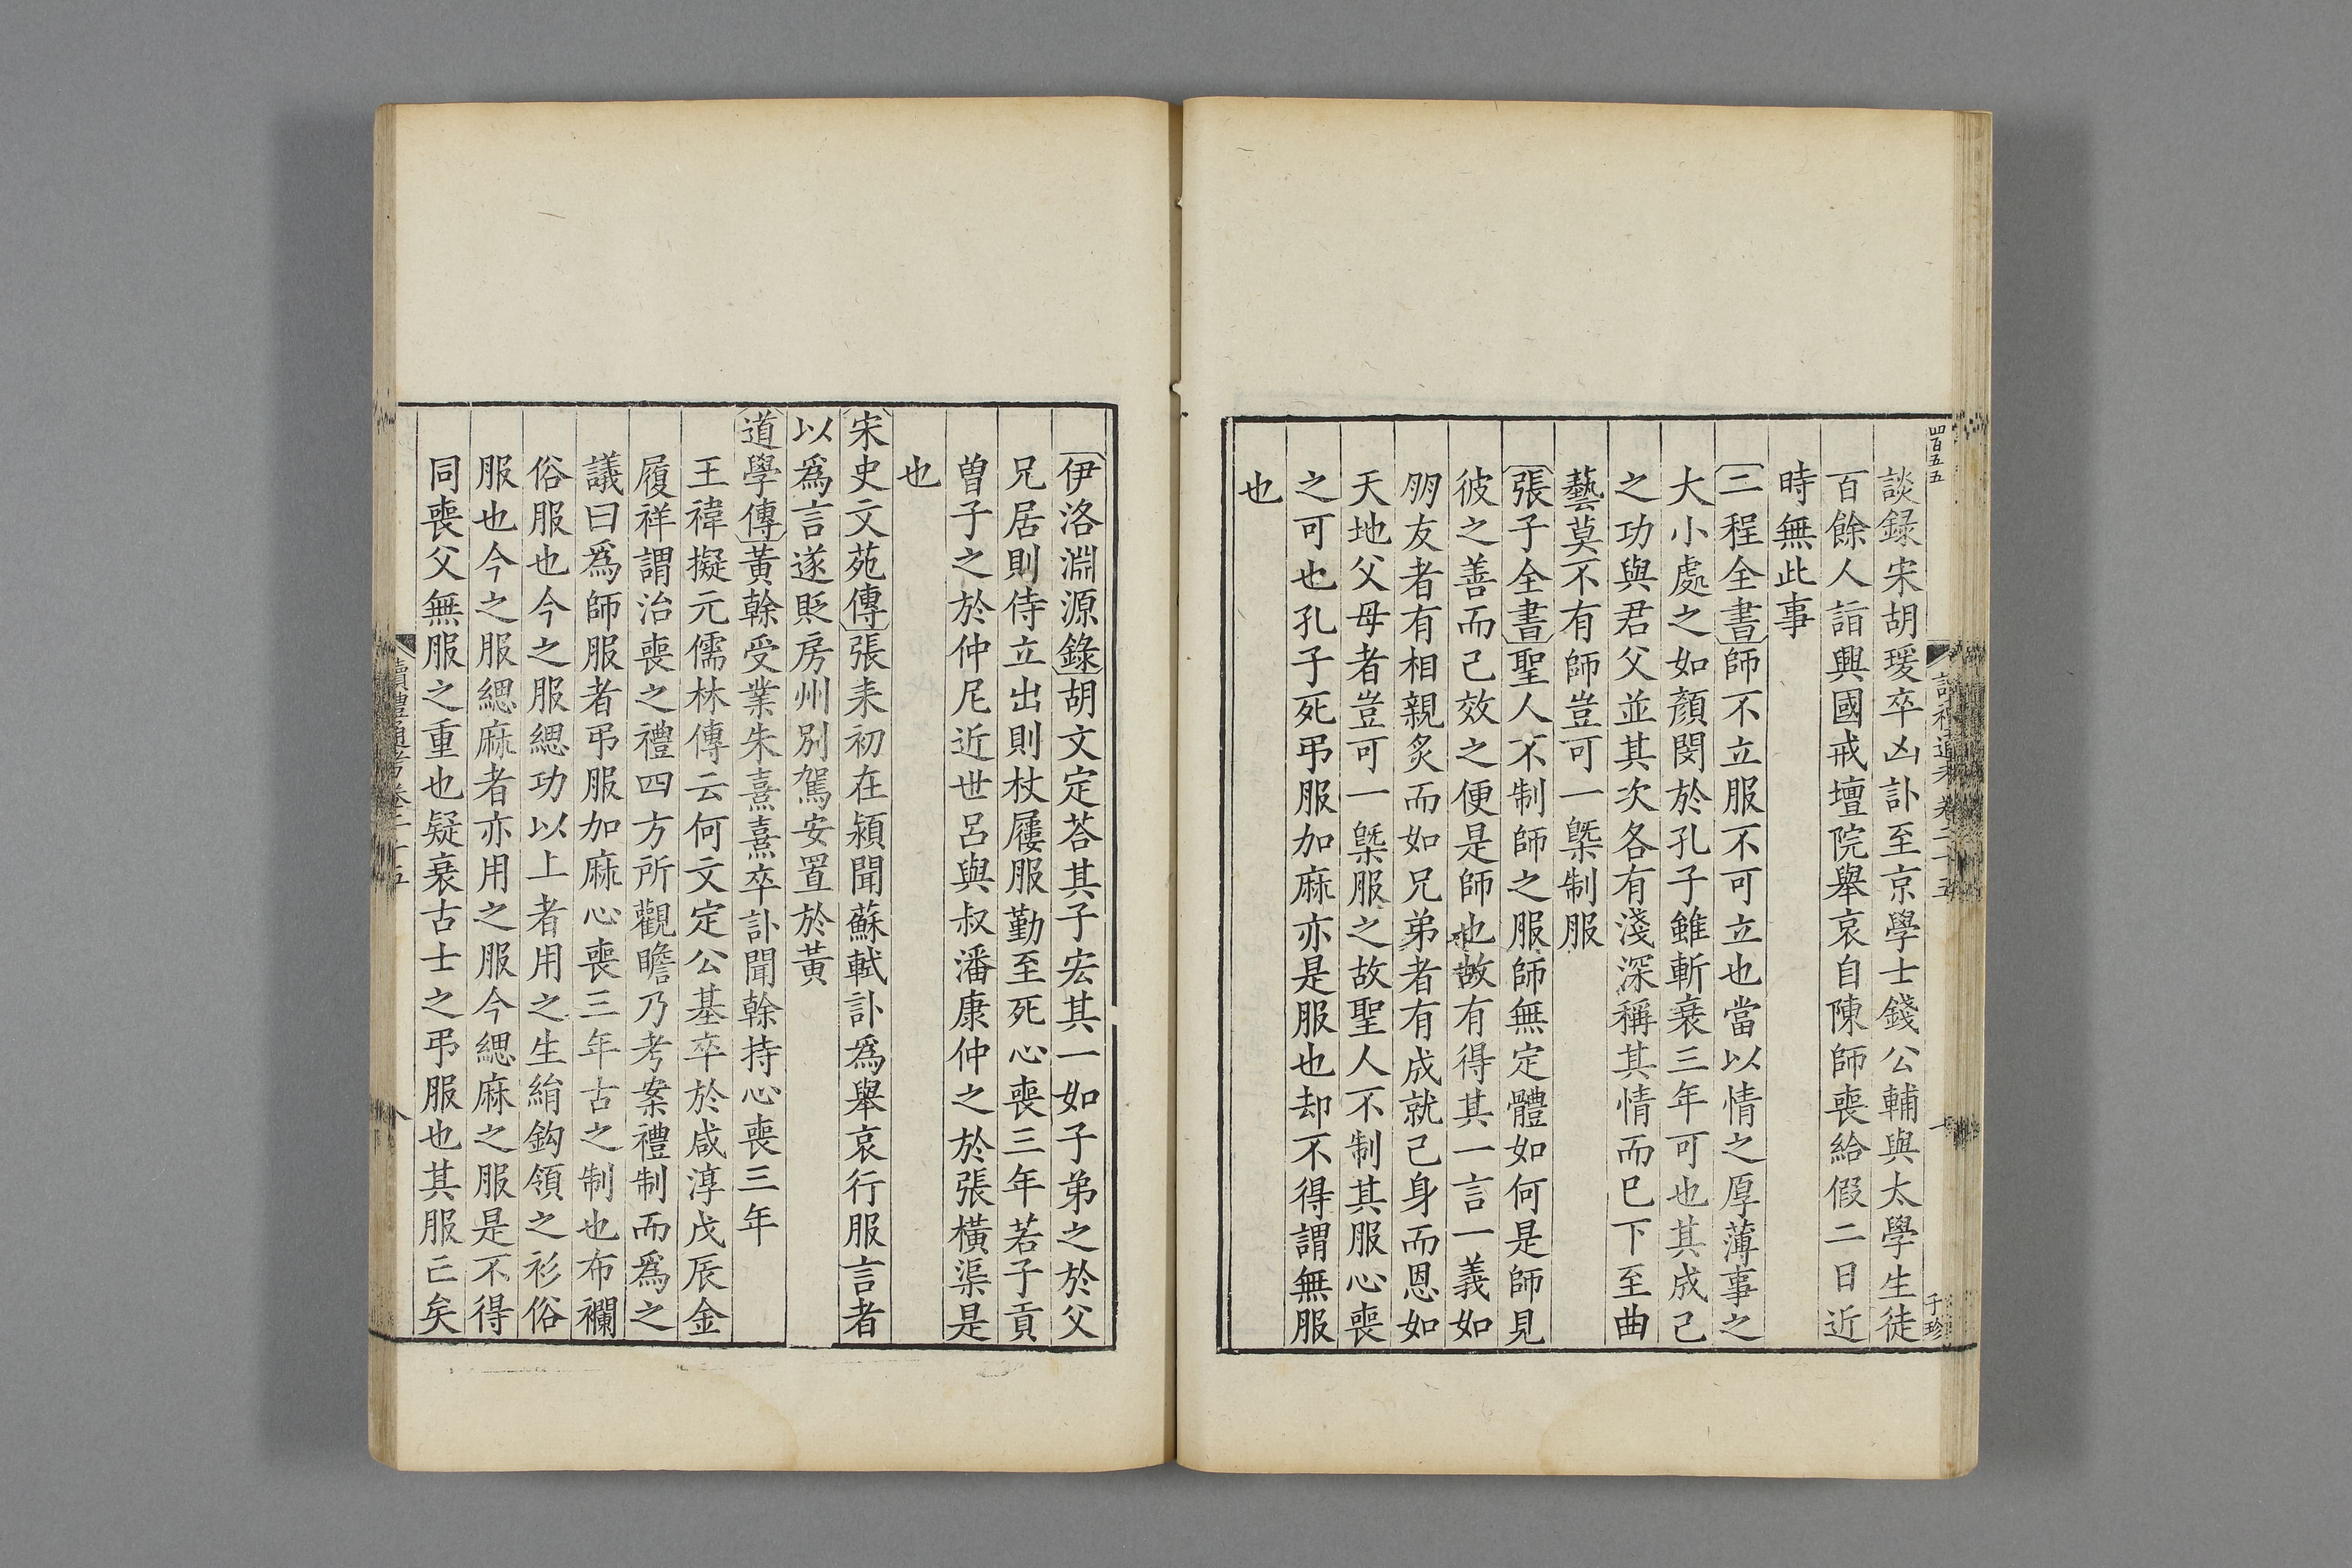 四百五五
讀禮通考 卷二十五
于珍
談録宋胡瑗卒凶訃至京學士錢公輔與太學生徒
百餘人詣興國戒壇院舉哀自陳師喪給假二日近
時無此事
二程全書師不立服不可立也當以情之厚薄事之
大小處之如顏閔於孔子雖斬衰三年可也其成己
之功與君父並其次各有淺深稱其情而已下至曲
藝莫不有師豈可一槩制服
張子全書聖人不制師之服師無定體如何是師見
彼之善而己效之便是師也故有得其一言一義如
朋友者有相親炙而如兄弟者有成就己身而恩如
天地父母者豈可一槩服之故聖人不制其服心喪
之可也孔子死弔服加麻亦是服也却不得謂無服
也
伊洛淵源錄胡文定荅其子宏其一如子弟之於父
兄居則侍立出則杖屨服勤至死心喪三年若子貢
曾子之於仲尼近世呂與叔潘康仲之於張橫渠是
也
宋史文苑傳張耒初在潁聞蘇軾訃爲舉哀行服言者
以爲言遂貶房州别駕安置於黃
道學傳黃榦受業朱熹熹卒訃聞榦持心喪三年
王禕擬元儒林傳云何文定公基卒於咸淳戊辰金
履祥謂治喪之禮四方所觀瞻乃考案禮制而爲之
議曰爲師服者弔服加麻心喪三年古之制也布襴
俗服也今之服緦功以上者用之生絹鈎領之衫俗
服也今之服緦麻者亦用之服今緦麻之服是不得
同喪父無服之重也疑衰古士之弔服也其服亡矣
讀禮通考卷二十五